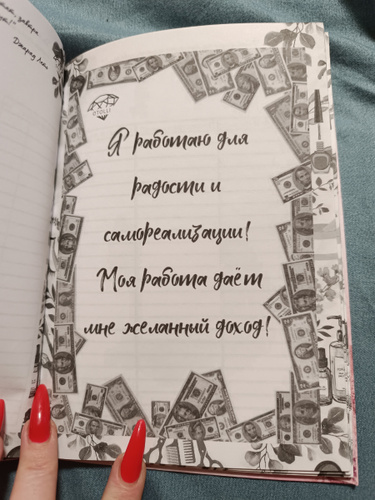 Джаред Лето
Я работаю для
радости и
самореализации!
Моя работа даёт
мне желанный доход!